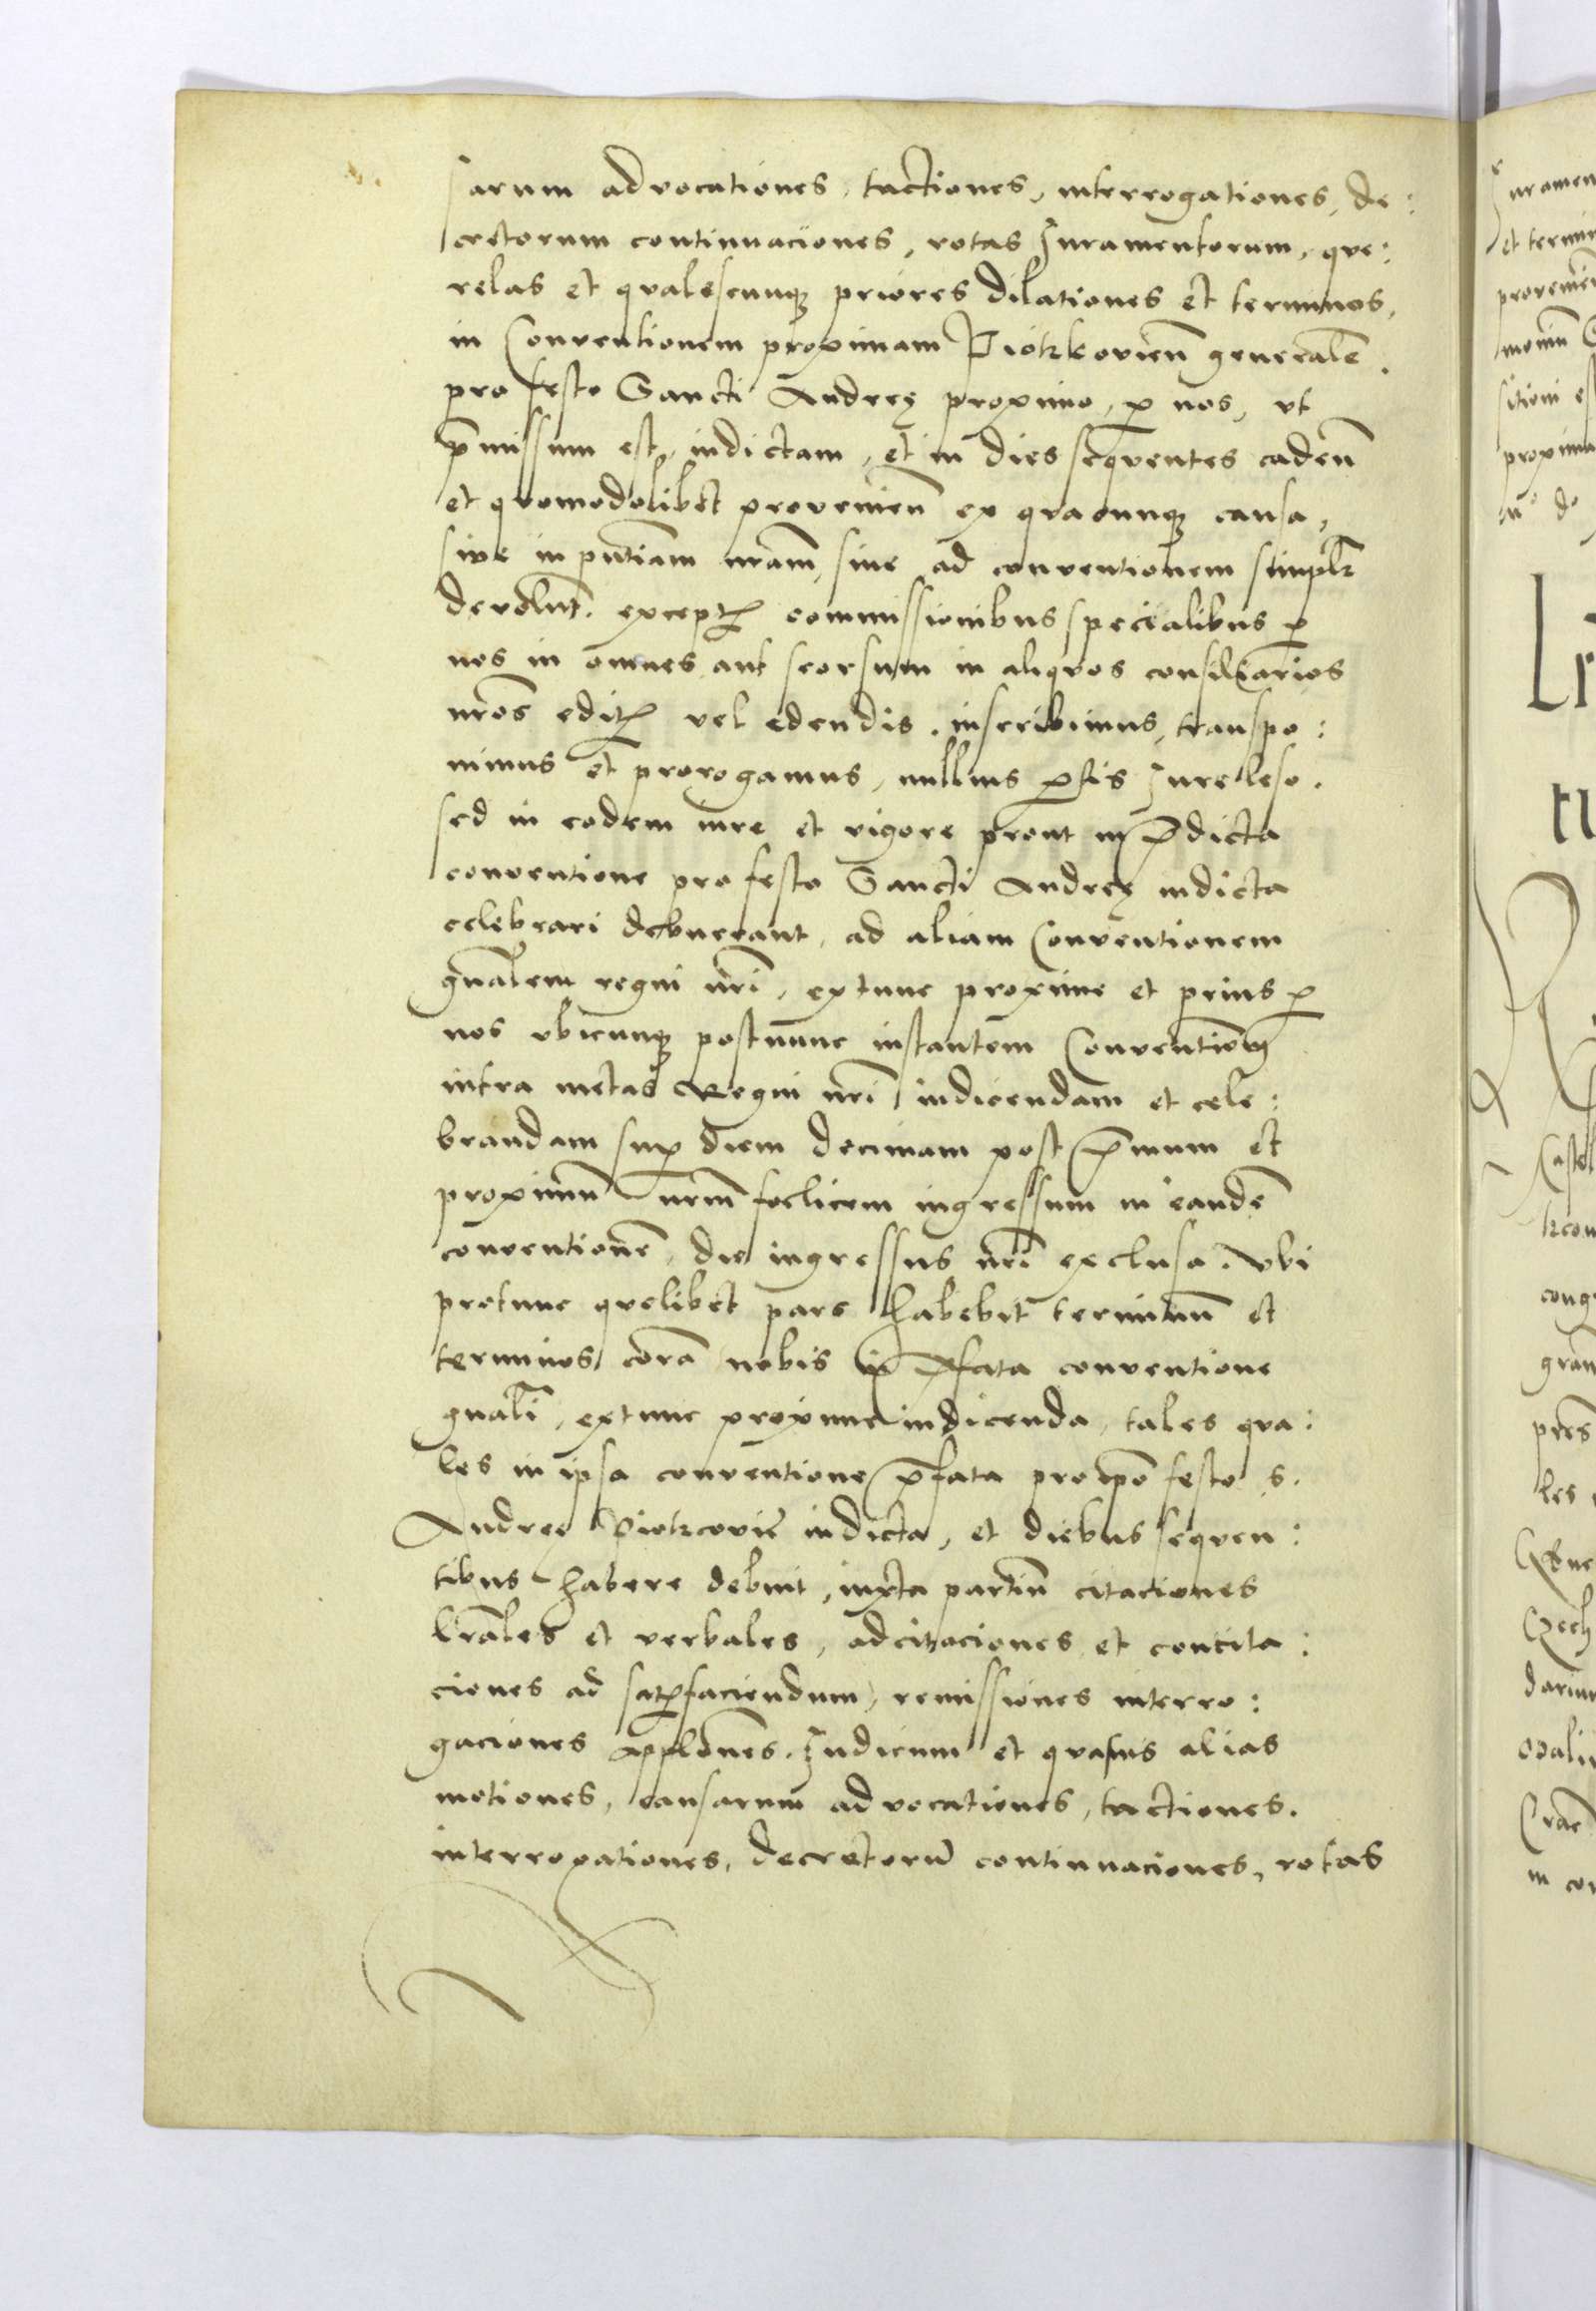 sarum advocationes, tactiones, interrogationes, de:
cretorum continuaciones, rotas Juramentorum, que:
relas et qualescunq₃ priores dilationes et terminos,
in Conventionem proximam Piotrkovien̄ generalē.
pro festo Sancti Andreę proximo, p̱ nos, ut
p̄missum est, indictam, et in dies sequentes caden̄
et quomodolibet provenien̄ ex quacunq₃ causa,
sive in pn̄tiam nr̄am, sive ad conventionem simplr̄
devolut. exceptꝭ commissionibus specialibus p̱
nos in omnes aut seorsum in aliquos consiliarios
nr̄os editꝭ vel edendis. inscribimus, transpo:
nimus et prorogamus, nullius p̱tis Jure leso.
sed in eodem iure et vigore prout in p̄dicta
conventione pro festo Sancti Andreę indicta
celebrari debuerant, ad aliam Conventionem
gn̄alem regni nr̄i, extunc proxime et prius p̱
nos ubicunq₃ post nunc instantem Conventionē
intra metas Regni nr̄i indicendam et cele:
brandam sup̱ diem decimam post p̄mum et
proximū nr̄m foelicem ingressum in eandē
conventionē, die ingressus nr̄i exclusa. Ubi
protunc quelibet pars habebit terminū et
terminos corā nobis in p̄fata conventione
gn̄ali, extunc proxime indicenda, tales qua:
les in ipsa conventione p̄fata pro ipō festo S.
Andreę Piotrcoviē indicta, et diebus sequen:
tibus habere debuit, iuxta partiū citaciones
lr̄ales et verbales, adcitaciones et concita:
ciones ad satisfaciendum, remissiones interro:
gaciones applōnes. Judicum et quasuis alias
motiones, causarum advocationes, tactiones.
interrogationes, decretorū continuaciones, rotas
Juramen
et termin
provenien
proxima